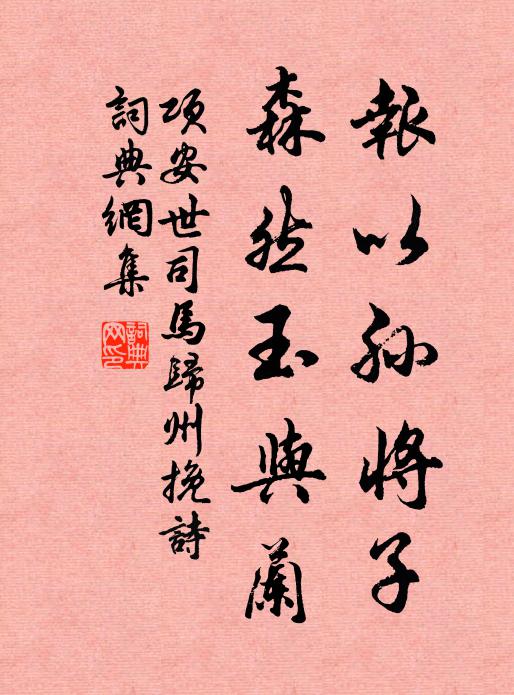 報以孫將子
森然玉與蘭
項安世司馬歸州挽詩
詞典網集
詞典网印